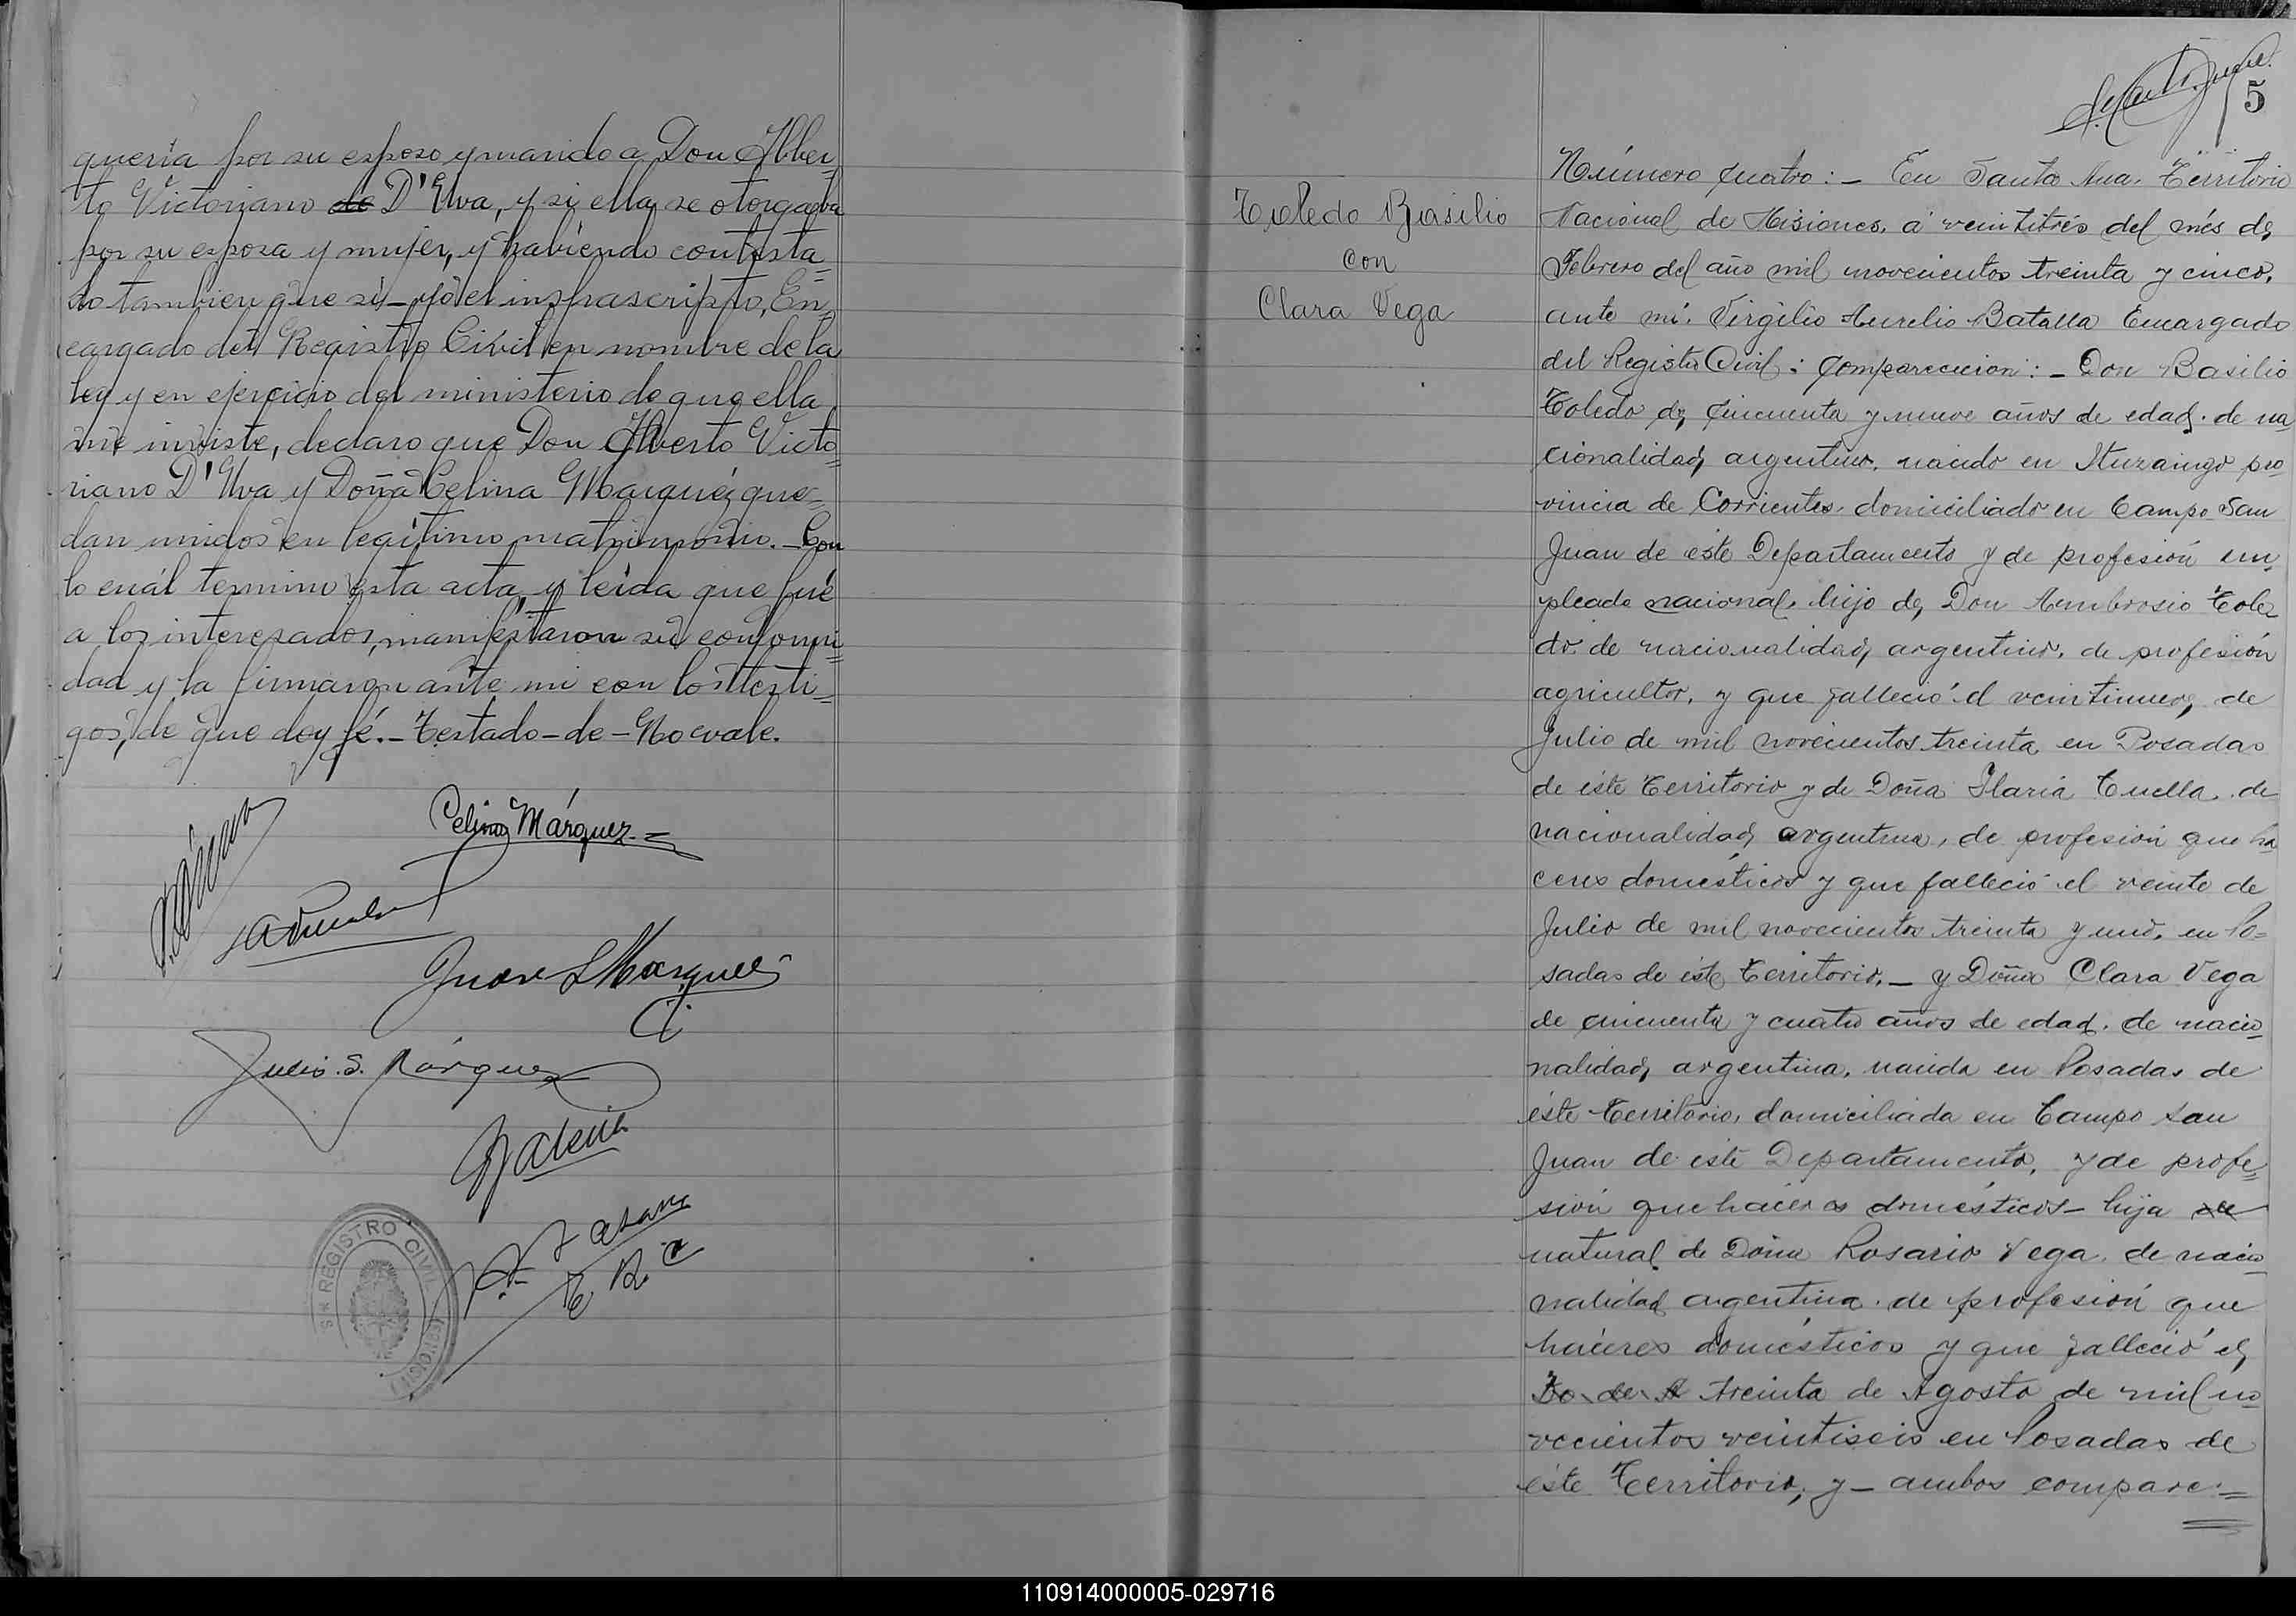 quería por su esposo y marido a Don Alber-
to Victoriano de D'Uva, y si ella se otorgaba
por su esposa y mujer, y habiendo contesta-
do tambien que si - yo el infrascripto, En-
cargado del Registro Civil en nombre de la
ley y en ejercicio del ministerio de que ella
me inviste, declaro que Don Alberto Victo-
riano D'Uva y Doña Celina Marquéz que-
dan unidos en legítimo matrimonio. - Con
lo cuál termino esta acta, y leída que fué
a los interesados, manifestaron su conformi-
dad y la firmaron ante mi con los testi-
gos, de que doy fé. - Testado - de - No vale.
Celina Márquez
Juan L Marquez
Julio. S. Márquez
E. R. C
REGISTRO CIVIL
MISIONES
5
Toledo Basilio
con
Clara Vega
Número cuatro: - En Santa Ana. Territorio
Nacional de Misiones, a veintitrés del més de
Febrero del año mil novecientos treinta y cinco,
ante mi. Virgilio Aurelio Batalla Encargado
del Registro Civil: Comparecieron: - Don Basilio
Toledo de cincuenta y nueve años de edad. de na
cionalidad argentino, nacido en Ituzaingo pro-
vincia de Corrientes. domiciliado en Campo San
Juan de éste Departamento y de profesión em-
pleado nacional, hijo de Don Ambrosio Tole-
do de nacionalidad argentino, de profesión
agricultor, y que falleció el veintinueve de
Julio de mil novecientos treinta en Posadas
de éste Territorio y de Doña Ilaria Cuella de
nacionalidad argentina, de profesión que ha
ceres domésticos y que falleció el veinte de
Julio de mil novecientos treinta y uno, en Po-
sadas de éste Territorio. - y Doña Clara Vega
de cincuenta y cuatro años de edad. de nacio-
nalidad argentina, nacida en Posadas de
éste Territorio, domiciliada en Campo San
Juan de éste Departamento, y de profe-
sión que haceres domésticos - hija de
natural de Doña Rosario Vega, de nacio-
nalidad argentina. de profesión que
haceres domésticos y que falleció el
to de A treinta de Agosto de mil no-
vecientos veintiseis en Posadas de
éste Territorio; y - ambos compare-
110914000005-029716